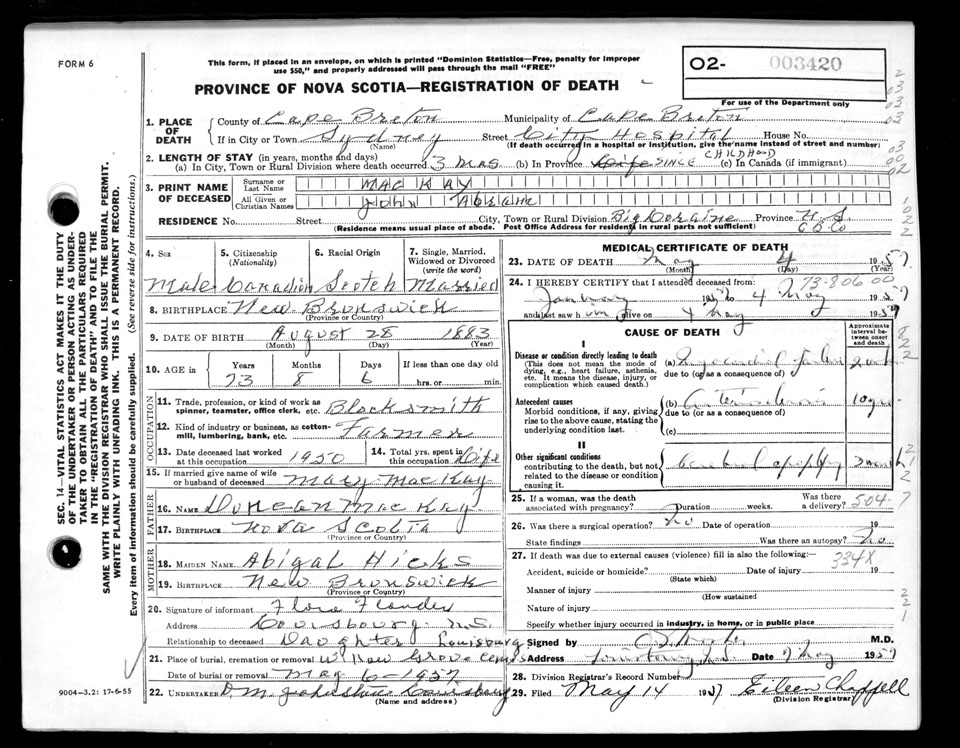 FORM 6
This form, if placed in an envelope, on which is printed "Dominion Statistics—Free, penalty for improper
use $50," and properly addressed will pass through the mail "FREE"
PROVINCE OF NOVA SCOTIA—REGISTRATION OF DEATH
O2- 003420
For use of the Department only
1. PLACE OF DEATH
County of Cape Breton Municipality of Cape Breton
If in City or Town Sydney Street City Hospital House No.
(Name) (If death occurred in a hospital or institution, give the name instead of street and number)
2. LENGTH OF STAY (in years, months and days)
(a) In City, Town or Rural Division where death occurred 3 mos (b) In Province Life SINCE CHILDHOOD (c) In Canada (if immigrant)
3. PRINT NAME OF DECEASED
Surname or Last Name MACKAY
All Given or Christian Names John
RESIDENCE No. Street City, Town or Rural Division Big Loraine Province N.S
(Residence means usual place of abode. Post Office Address for residents in rural parts not sufficient) C B Co
4. Sex 5. Citizenship (Nationality) 6. Racial Origin 7. Single, Married, Widowed or Divorced (write the word)
Male Canadian Scotch Married
8. BIRTHPLACE New Bronswick
(Province or Country)
9. DATE OF BIRTH August 28 1883
(Month) (Day) (Year)
10. AGE in Years Months Days If less than one day old
73 8 6 hrs. or min.
OCCUPATION
11. Trade, profession, or kind of work as spinner, teamster, office clerk, etc. Blacksmith
12. Kind of industry or business, as cotton-mill, lumbering, bank, etc. Farmer
13. Date deceased last worked at this occupation 1950 14. Total yrs. spent in this occupation Life
15. If married give name of wife or husband of deceased Mary MacKay
FATHER
16. NAME Duncan MacKay
17. BIRTHPLACE Nova Scotia
(Province or Country)
MOTHER
18. MAIDEN NAME Abigal Hicks
19. BIRTHPLACE New Bronswick
(Province or Country)
20. Signature of informant
Address Louisbourg N.S.
Relationship to deceased Daughter Louisburg
21. Place of burial, cremation or removal Willow Grove
Date of burial or removal May 6-1957
22. UNDERTAKER D M Johnston Louisburg
(Name and address)
MEDICAL CERTIFICATE OF DEATH
23. DATE OF DEATH May 4 1957
(Month) (Day) (Year)
24. I HEREBY CERTIFY that I attended deceased from: 73-806 00
January 1957 to 4 May 1957
and last saw h im alive on 4 May 1957
CAUSE OF DEATH
Approximate interval between onset and death
I
Disease or condition directly leading to death
(This does not mean the mode of dying, e.g., heart failure, asthenia, etc. It means the disease, injury, or complication which caused death.)
(a) Myocardial failure
due to (or as a consequence of)
Antecedent causes
Morbid conditions, if any, giving rise to the above cause, stating the underlying condition last.
(b)
due to (or as a consequence of)
(c)
II
Other significant conditions
contributing to the death, but not related to the disease or condition causing it.
Cerebral apoplexy
25. If a woman, was the death associated with pregnancy? Duration weeks. Was there a delivery? 504
26. Was there a surgical operation? No Date of operation 19
State findings Was there an autopsy? No
27. If death was due to external causes (violence) fill in also the following:— 334X
Accident, suicide or homicide? Date of injury 19
(State which)
Manner of injury
(How sustained)
Nature of injury
Specify whether injury occurred in industry, in home, or in public place
Signed by M.D.
Address Date 7 May 1957
28. Division Registrar's Record Number
29. Filed May 14 1957 Eileen Chappell
(Division Registrar)
SEC. 14—VITAL STATISTICS ACT MAKES IT THE DUTY
OF THE UNDERTAKER OR PERSON ACTING AS UNDER-
TAKER TO OBTAIN ALL THE PARTICULARS REQUIRED
IN THE "REGISTRATION OF DEATH" AND TO FILE THE
SAME WITH THE DIVISION REGISTRAR WHO SHALL ISSUE THE BURIAL PERMIT.
WRITE PLAINLY WITH UNFADING INK. THIS IS A PERMANENT RECORD.
Every item of information should be carefully supplied. (See reverse side for instructions.)
9004-3.2: 17-6-55